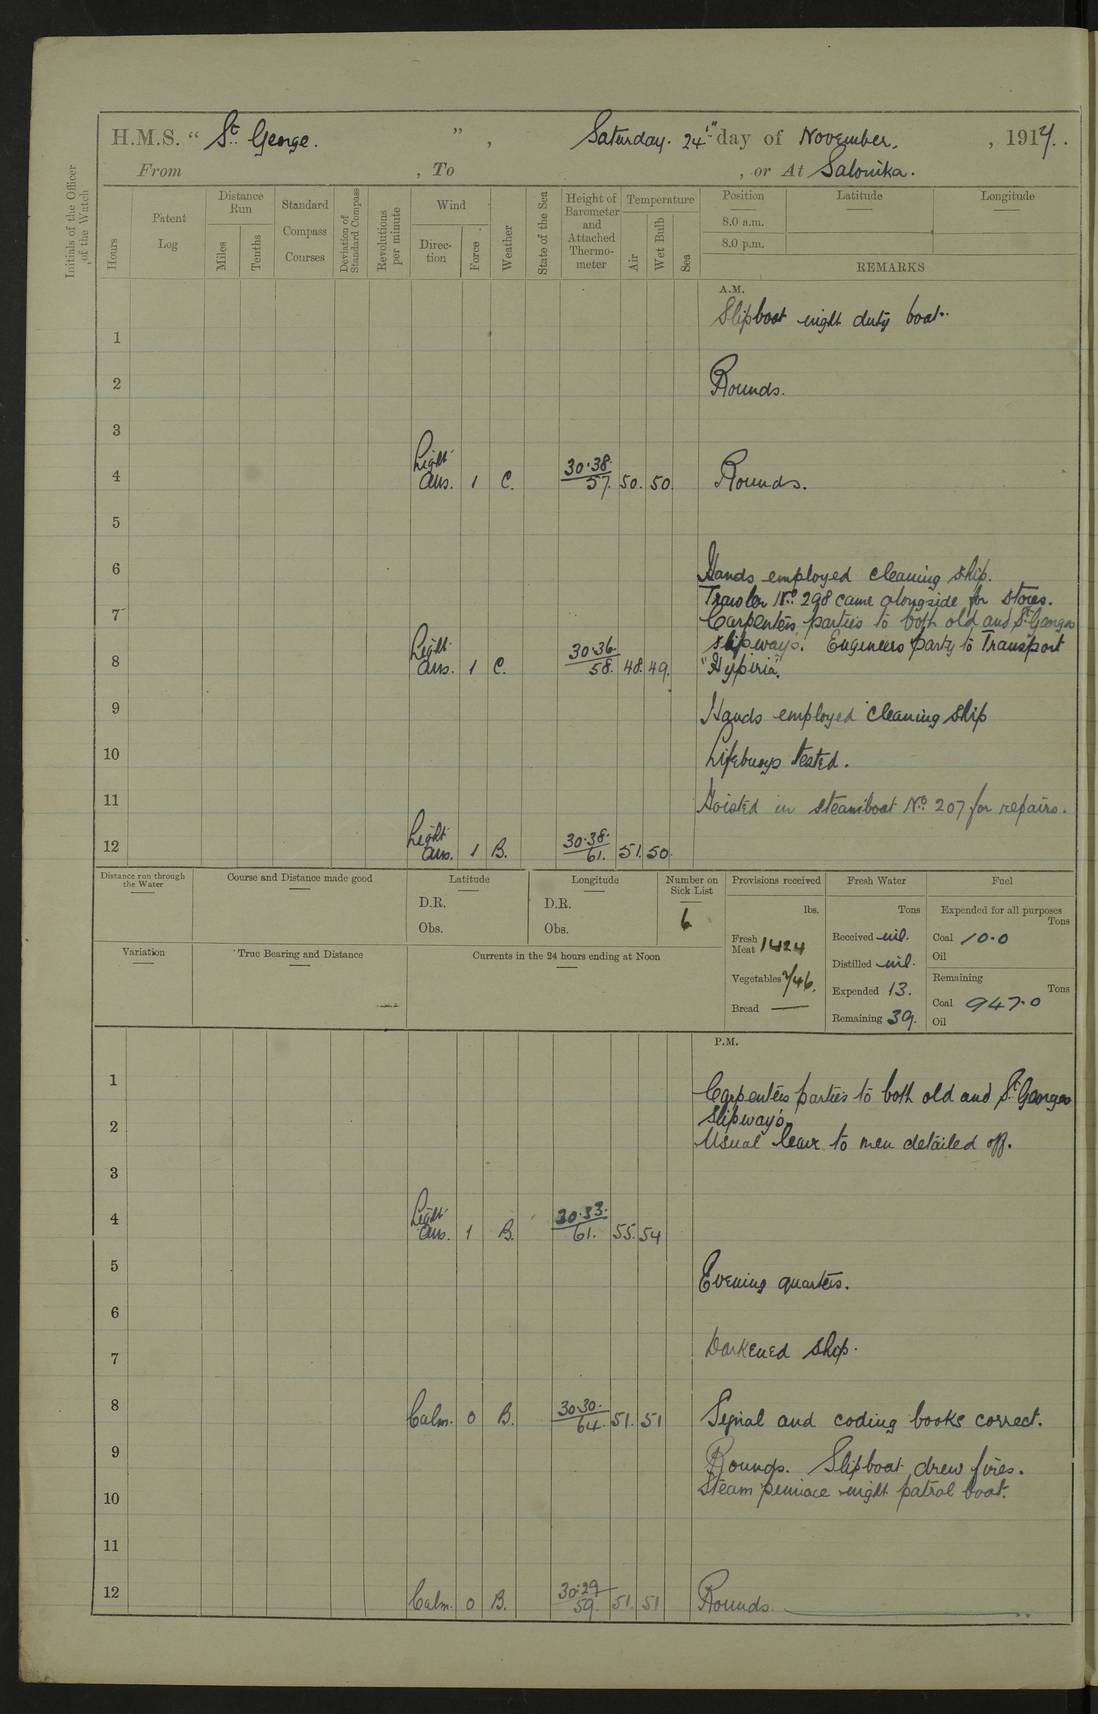 H.M.S. “ St. George. ”, Saturday. 24th day of November, , 1917.
From , To , or At Salonika.
Initials of the Officer of the Watch
Hours
Patent Log
Distance Run
Miles
Tenths
Standard Compass Courses
Deviation of Standard Compass
Revolutions per minute
Wind
Direc-tion
Force
Weather
State of the Sea
Height of Barometer and Attached Thermo-meter
Temperature
Air
Wet Bulb
Sea
Position
8.0 a.m.
8.0 p.m.
Latitude
Longitude
REMARKS
A.M.
Slipboat night duty boat.
1
2 Rounds.
3
4 Light Airs. 1 C. 30.38 57. 50. 50. Rounds.
5
6 Hands employed cleaning ship.
Trawler No. 298 came alongside for stores.
7 Carpenters parties to both old and St. Georges
slipways. Engineers party to Transport
8 Light Airs. 1 C. 30.36 58. 48. 49. "Hypiria".
9 Hands employed cleaning ship
10 Lifebuoys tested.
11 Hoisted in steamboat No. 207 for repairs.
12 Light Airs. 1 B. 30.38. 61. 51. 50.
Distance run through the Water
Course and Distance made good
Latitude
D.R.
Obs.
Longitude
D.R.
Obs.
Number on Sick List
6
Provisions received
lbs.
Fresh Meat 1424
Vegetables 746.
Bread —
Fresh Water
Tons
Received nil.
Distilled nil.
Expended 13.
Remaining 39.
Fuel
Expended for all purposes
Tons
Coal 10.0
Oil
Remaining
Tons
Coal 947.0
Oil
Variation
True Bearing and Distance
Currents in the 24 hours ending at Noon
P.M.
1 Carpenters parties to both old and St. Georges
2 slipways.
Usual leave to men detailed off.
3
4 Light Airs. 1 B. 30.33. 61. 55. 54
5 Evening quarters.
6
7 Darkened ship.
8 Calm. 0 B. 30.30. 64. 51. 51 Signal and coding books correct.
9 Rounds. Slipboat drew fires.
10 Steam pinnace night patrol boat.
11
12 Calm. 0 B. 30.29 59. 51. 51 Rounds.